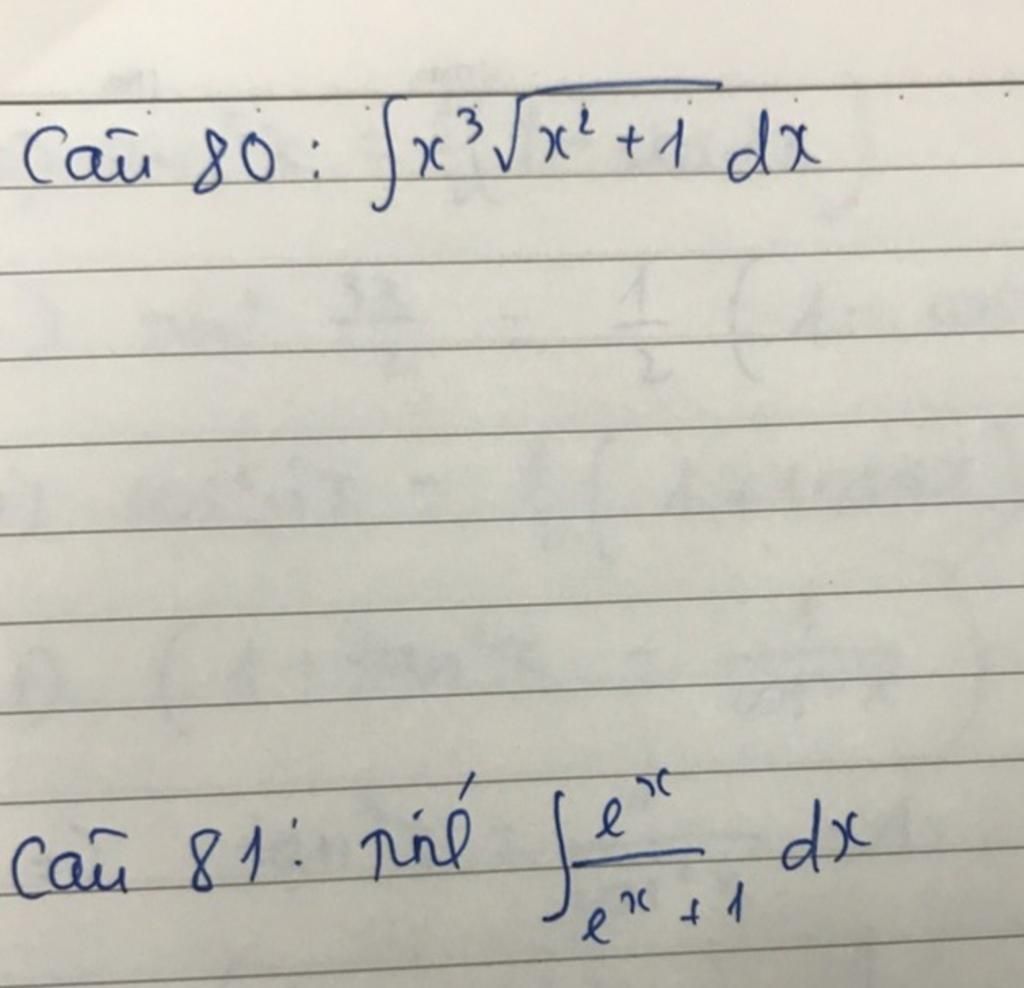 Câu 80 : ∫x³√(x² + 1) dx
Câu 81 : Tính ∫ eˣ/(eˣ + 1) dx